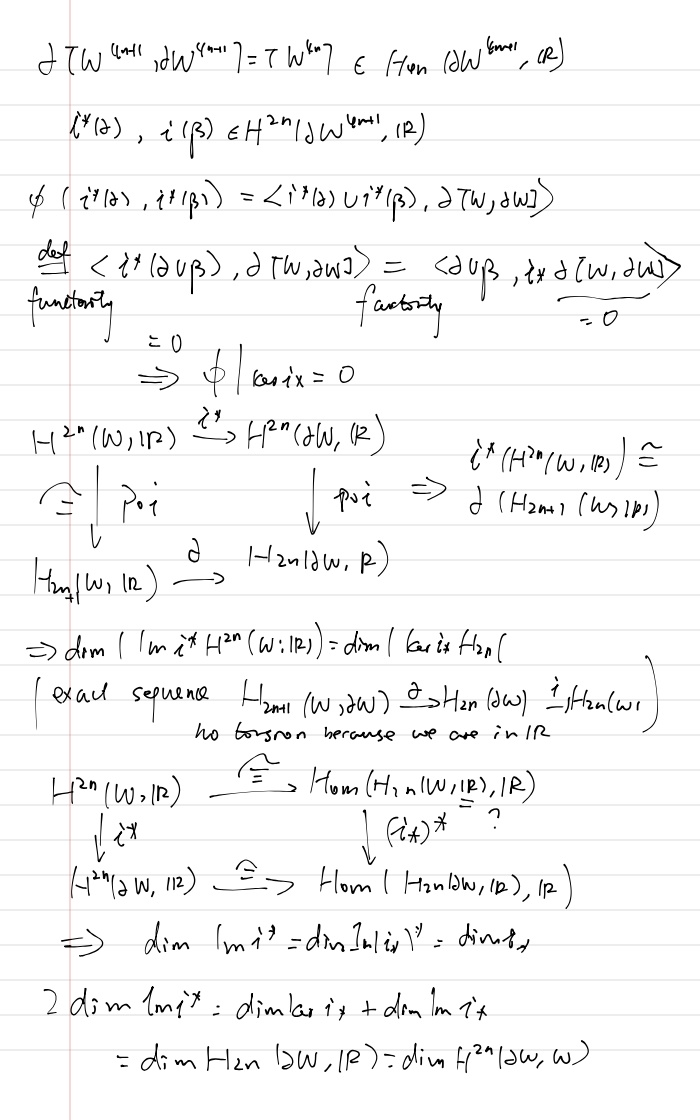 ∂[W^{4n+1}, ∂W^{4n+1}] = [W^{4n}] ∈ H_{4n}(∂W^{4n+1}, ℝ)
i*(∂), i(β) ∈ H^{2n}(∂W^{4n+1}, ℝ)
ϕ(i*(∂), i*(β)) = <i*(∂) ∪ i*(β), ∂[W, ∂W]>
def= <i*(∂∪β), ∂[W, ∂W]> = <∂∪β, i_* ∂[W, ∂W]>
= 0
= 0
⇒ ϕ| ker i_* = 0
H^{2n}(W, ℝ) —i*→ H^{2n}(∂W, ℝ)
≅ ↓ Poi ↓ Poi ⇒ i*(H^{2n}(W, ℝ) ≅
∂(H_{2n+1}(W, ℝ)
H_{2n+}(W, ℝ) —∂→ H_{2n}(∂W, ℝ)
⇒ dim(Im i* H^{2n}(W:ℝ) = dim(ker i_* H_{2n}(
(exact sequence H_{2n+1}(W, ∂W) —∂→ H_{2n}(∂W) —i→ H_{2n}(W)
no torsion because we are in ℝ
H^{2n}(W, ℝ) —≅→ Hom(H_{2n}(W, ℝ), ℝ)
↓ i* ↓ (i_*)* = ?
H^{2n}(∂W, ℝ) —≅→ Hom(H_{2n}(∂W, ℝ), ℝ)
⇒ dim Im i* = dim Im(i_*)* = dim i_*
2 dim Im i* = dim ker i_* + dim Im i_*
= dim H_{2n}(∂W, ℝ) = dim H^{2n}(∂W, W)